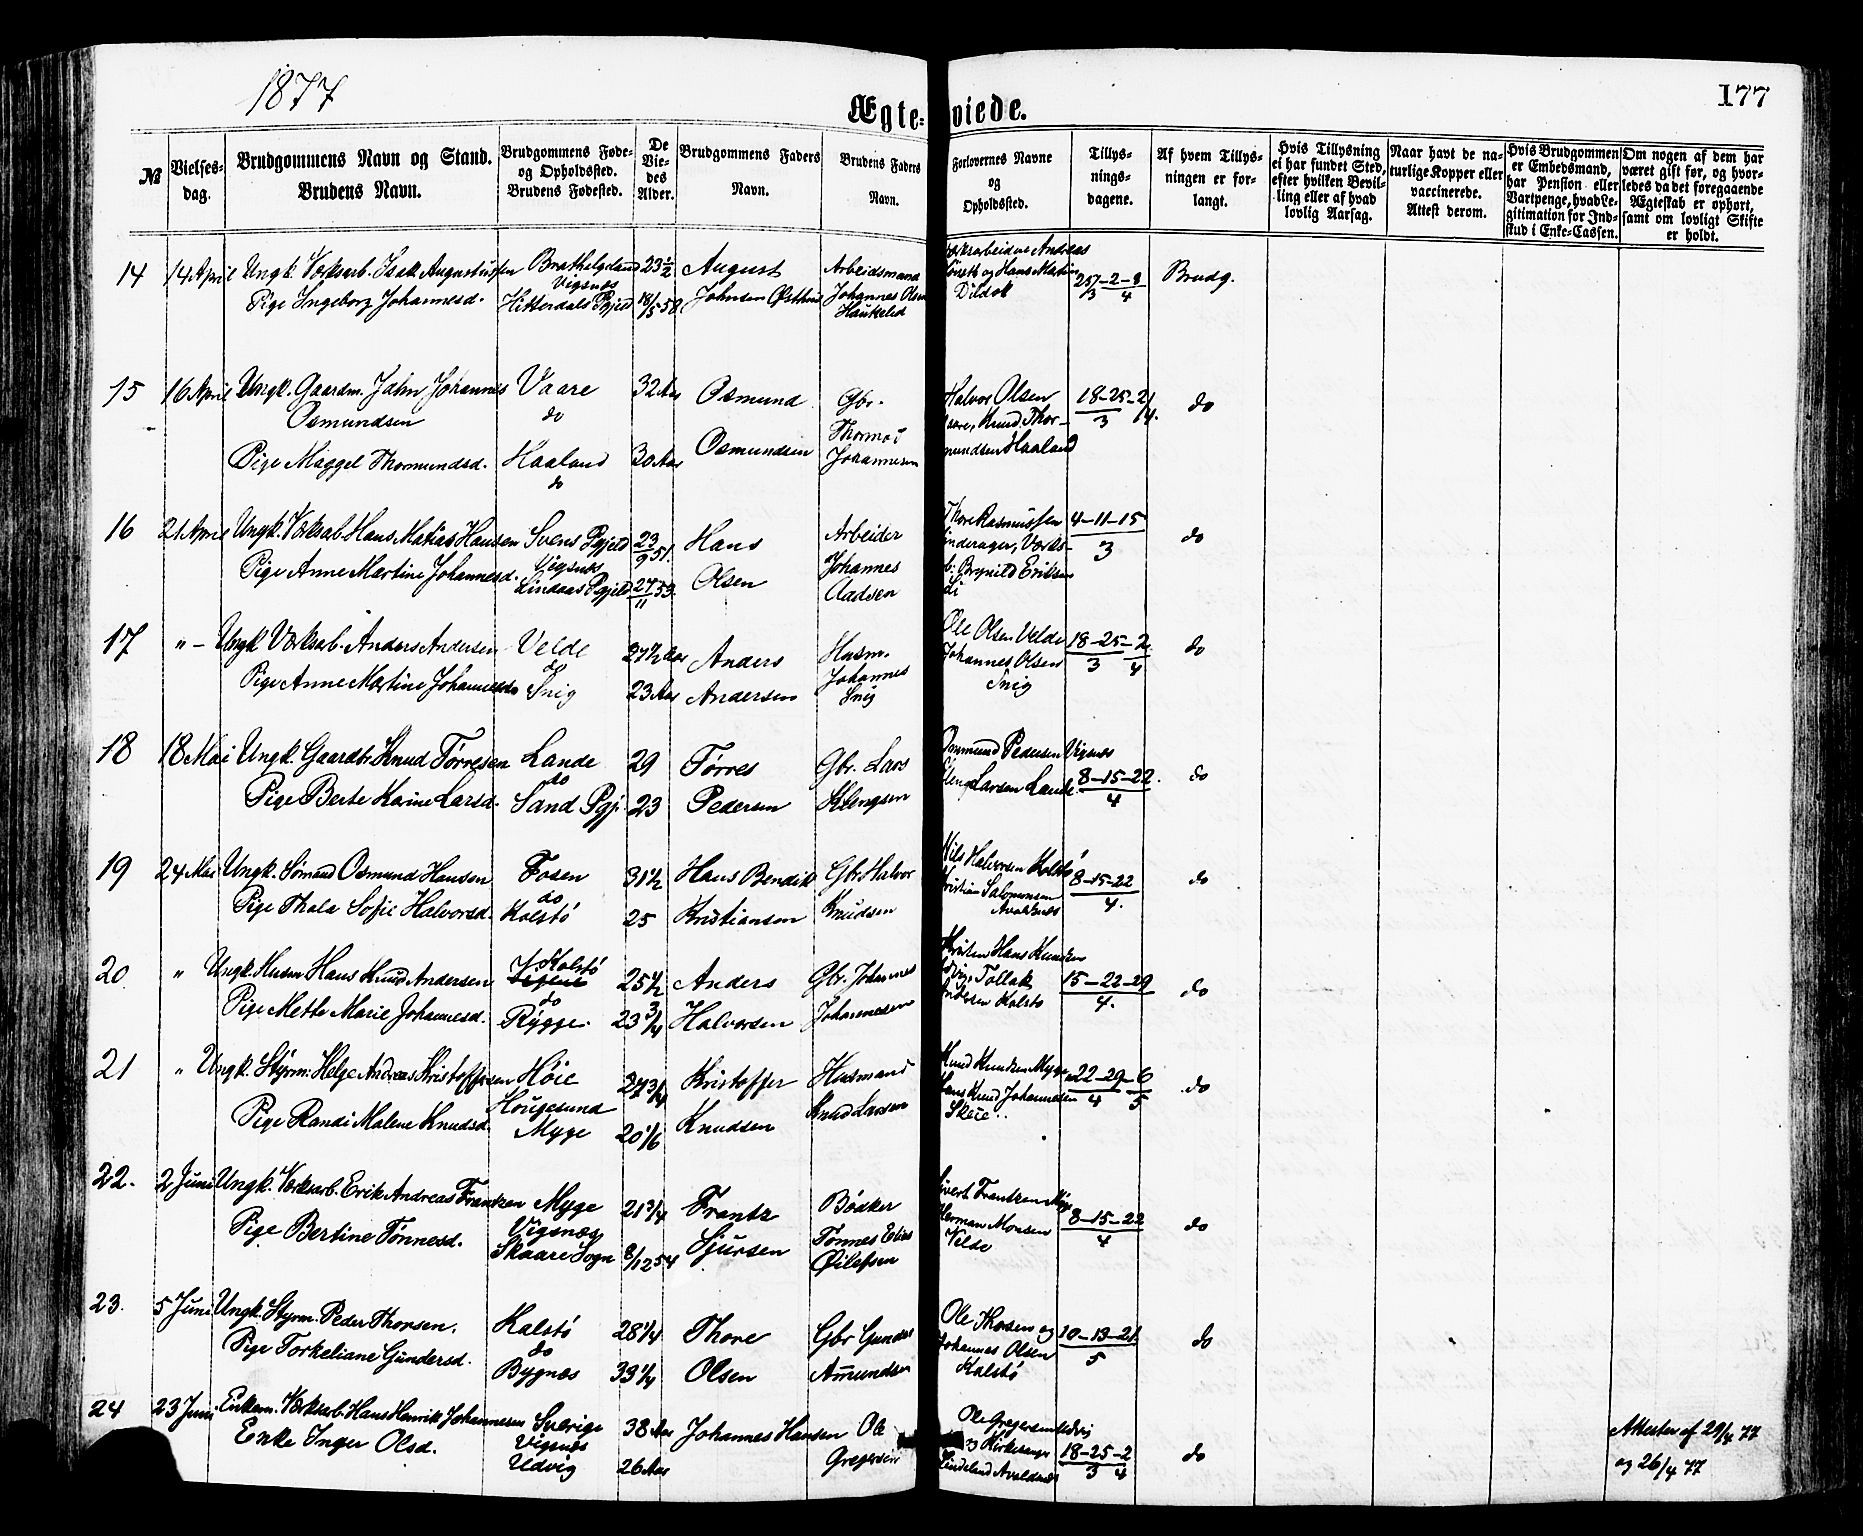 1877
177
Ægte-viede.
№ Vielses-dag. Brudgommens Navn og Stand. Brudens Navn. Brudgommens Føde- og Opholdssted. Brudens Fødested. De Vie-des Alder. Brudgommens Faders Navn. Brudens Faders Navn. Forlovernes Navne og Opholdssted. Tillys-nings-dagene. Af hvem Tillys-ningen er for-langt. Hvis Tillysning ei har fundet Sted, efter hvilken Bevil-ling eller af hvad lovlig Aarsag. Naar havt de na-turlige Kopper eller vaccinerede. Attest derom. Hvis Brudgommen er Embedsmand, har Pension eller Vartpenge, hvad Le-gitimation for Ind-skud i Enke-Cassen. Om nogen af dem har været gift før, og hvor-ledes da det foregaaende Ægteskab er ophørt, samt om lovligt Skifte er holdt.
14 14 April Ungk. Værksarb. Isak Augustussen Brathelgeland 23½ August Arbeidsmand Andreas
Vigsnæs
Pige Ingeborg Johannesd. Hitterdals Pgjeld 18/5 58 Johnsen Johannes Olsen og Hans Martin Brudg.
Haukelid
15 16 April Ungk. Gaardm. John Johannes Vaare 32 Aar Osmund Gbr. Halvor Olsen 18-25-2/4 do
Osmundsen do 3
Thormod Knud Thor-
Pige Maggel Thormundsd. Haaland 30 Aar Osmundsen Johannesen mundsen Haaland
do
16 21 April Ungk. Værksab. Hans Matias Hansen Svens Pgjeld 23/9 51. Hans Arbeider Thore Rasmussen 4-11-15 do
Vigsnæs 3
Pige Anne Martine Johannesd. Lindaas Pgjeld 27/11 53 Olsen Johannes Eriksen
Aadsen
17 " - Ungk Værksarb. Anders Andersen Velde 27½ Aar Anders Husm. Ole Olsen Velde 18-25-2 do
Johannes Johannes Olsen 3 4
Pige Anne Martine Johannesd Snig 23 Aar Andersen Snig Snig
18 18 Mai Ungk. Gaardbr. Knud Tørresen Lande 29 Tørres Gbr. Lars Pedersen Vigsnæs
do Larsen Lande 8-15-22. do
Pige Berte Karine Larsd. Sand Pgj. 23 Pedersen Klengsen 4
19 24 Mai Ungk. Sømand Osmund Hansen Fosen 31½ Hans Bendik Gbr. Halvor Nils Halvorsen Kolstø 8-15-22 do
do Kristian Salomonsen 4.
Pige Thala Sofie Halvorsd. Kolstø 25 Kristiansen Knudsen Avaldsnæs
20 " Ungk. Husm Hans Knud Andersen Kolstø 25½ Anders Gbr. Johannes Hans Knudsen
do Tollak 15-22-29 do
Pige Mette Marie Johannesd. Rygge. 23¾ Halvorsen Johannesen Andersen Kolstø 4.
21 " Ungk. Styrm. Helge Andreas Kristoffersen Høie 27¾ Kristoffer Husmand Knud Knudsen Myge 22-29-6 do
Hougesund Hans Knud Johannesen 4 5
Pige Randi Malene Knudsd. Myge 20 1/6 Knudsen Knud Larsen Skeie
22. 2 Juni Ungk. Værksarb. Erik Andreas Frantzen Myge 21¾ Frantz Bødker Sivert Frantzen Myge 8-15-22 do
Vigsnæs Tønnes Elias Herman Monsen 4
Pige Bertine Tønnesd. Skaare Sogn 8/12 54 Sjursen Velde
23. 5 Juni Ungk. Styrm. Peder Thorsen. Kalstø 28¼ Thore Gbr Gunder Ole Thorsen og 10-13-21 do
do Johannes Olsen 5
Pige Torkeliane Gundersd. Bygnæs 33¼ Olsen Amundsen Kalstø
24 23 Juni Enkem. Værksarb. Hans Henrik Johannesen Sverige 38 Aar Johannes Hansen Ole Ole Gregersen Udvig
Vigsnæs 18-25-2 do
Enke Inger Olsd. Udvig 26 Aar Gregersen Avaldsnæs 3 4
Attester af 29/4 77
og 26/4 77